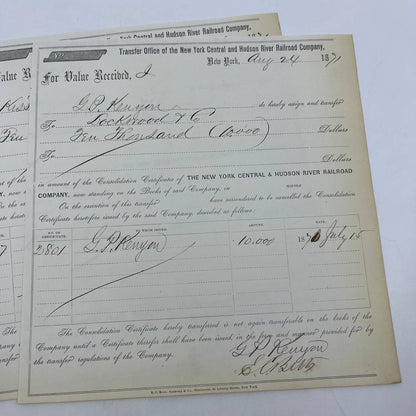 Transfer Office of the New York Central and Hudson River Railroad Company,
New York, Aug 24 1871
For Value Received, I
G. P. Kenyon
do hereby assign and transfer
To Lockwood & C
Ten Thousand (10,000) Dollars
To Dollars
in amount of the Consolidation Certificates of THE NEW YORK CENTRAL & HUDSON RIVER RAILROAD
COMPANY, now standing on the Books of said Company, in name
On the execution of this transfer do hereby surrender to be cancelled the Consolidation
Certificate heretofore issued by the said Company, described as follows.
NO. OF CERTIFICATE. AMOUNT. DATE.
2801 G. P. Kenyon 10,000 1870 July 15
The Consolidation Certificate hereby transferred is not again transferable on the books of the
Company until a Certificate therefor shall have been issued, in the form and manner provided for by
the transfer regulations of the Company.
G. P. Kenyon